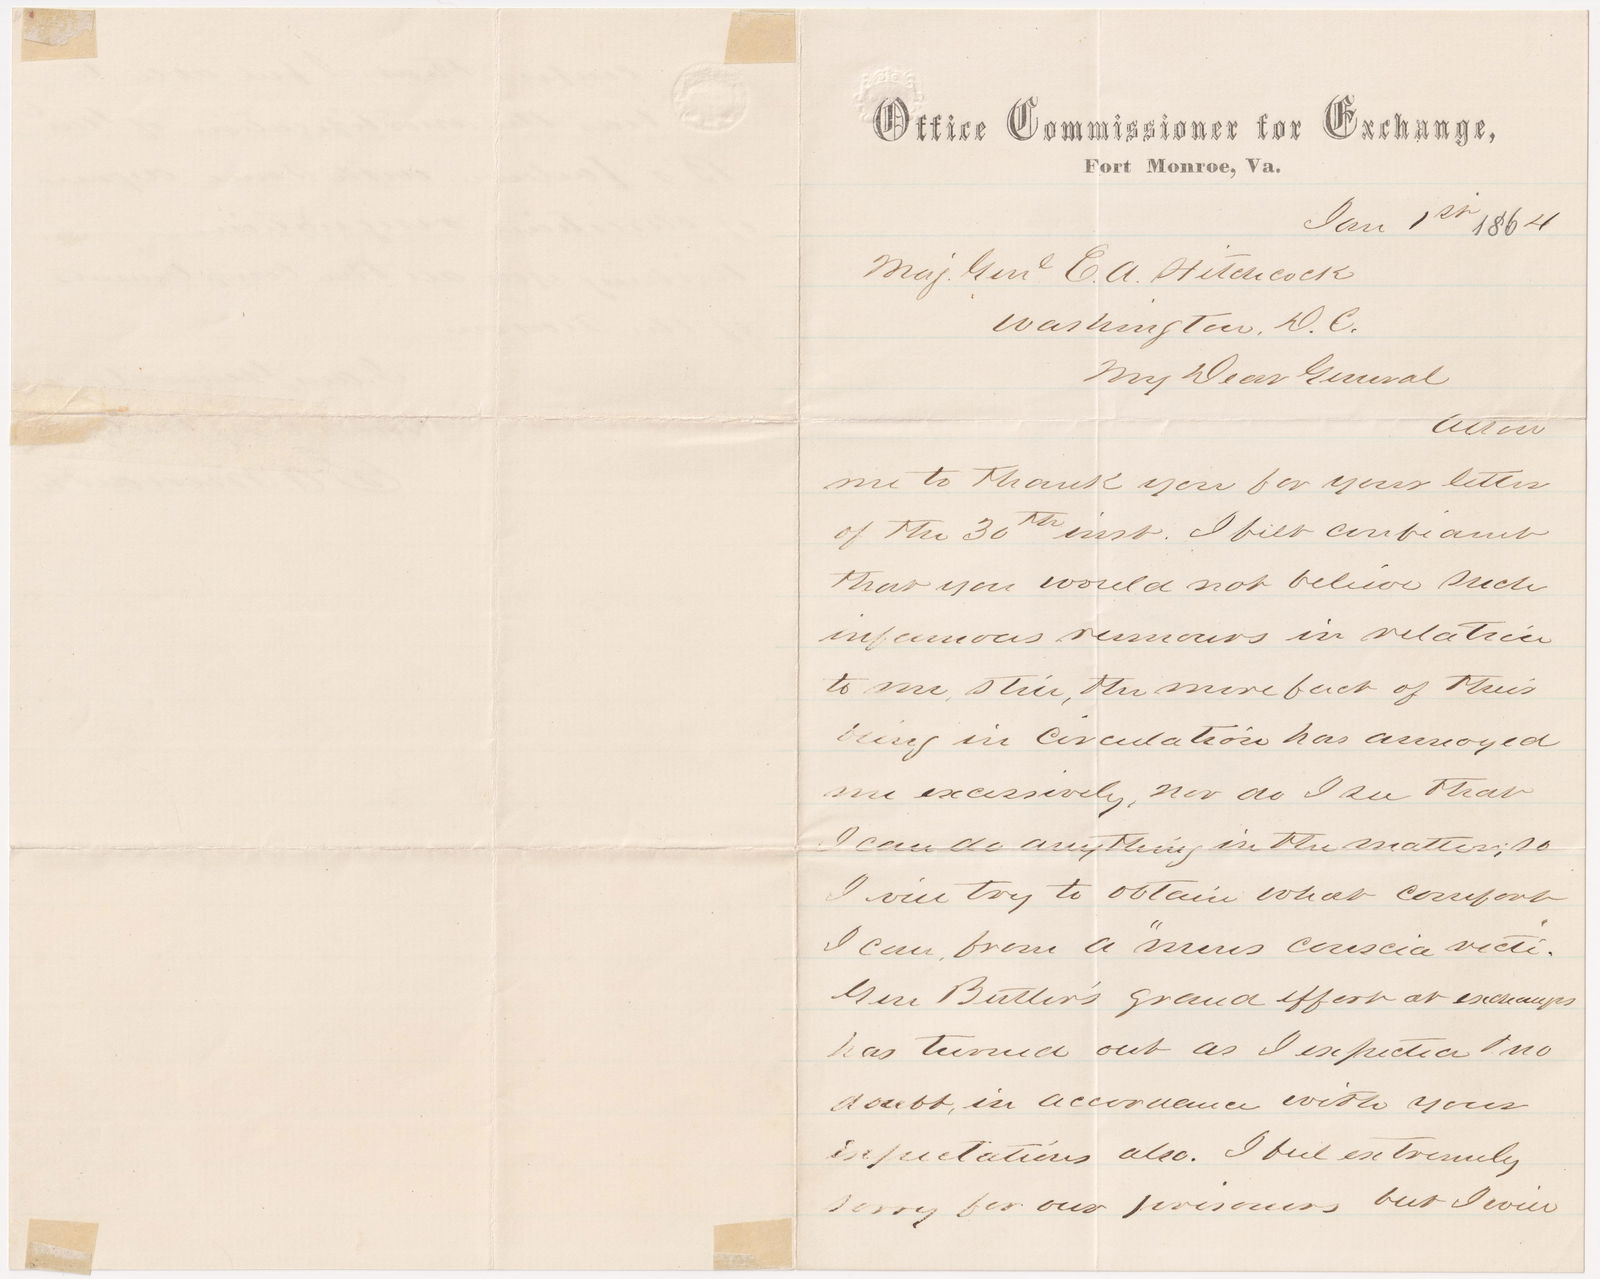 Office Commissioner for Exchange,
Fort Monroe, Va.
Jan 1st 1864
Maj. Genl E. A. Hitchcock
Washington, D. C.
My Dear General
Allow
me to thank you for your letter
of the 30th inst. I felt confidant
that you would not believe such
infamous rumours in relation
to me, still, the mere fact of their
being in circulation has annoyed
me excessively, nor do I see that
I can do anything in the matter; so
I will try to obtain what comfort
I can, from a "mens conscia recti.
Gen Butler's grand effort at exchanges
has turned out as I expected & no
doubt, in accordance with your
expectations also. I feel extremely
sorry for our prisoners but I will